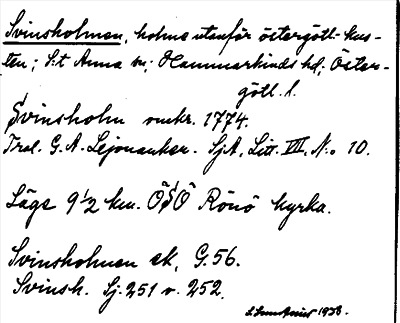 Svinsholmen, holme utanför östergötl. kus-
ten; S:t Anna sn; Hammarkinds hd; Öster-
götl. l.
Svinsholm omkr. 1774.
Trol. G. A. Lejonanker. SjA, Litt. VII, No 10.
Läge 9½ km. ÖSÖ Rönö kyrka.
Svinsholmen ek, G. 56.
Svinsh. Sj. 251 v. 252.
1938.